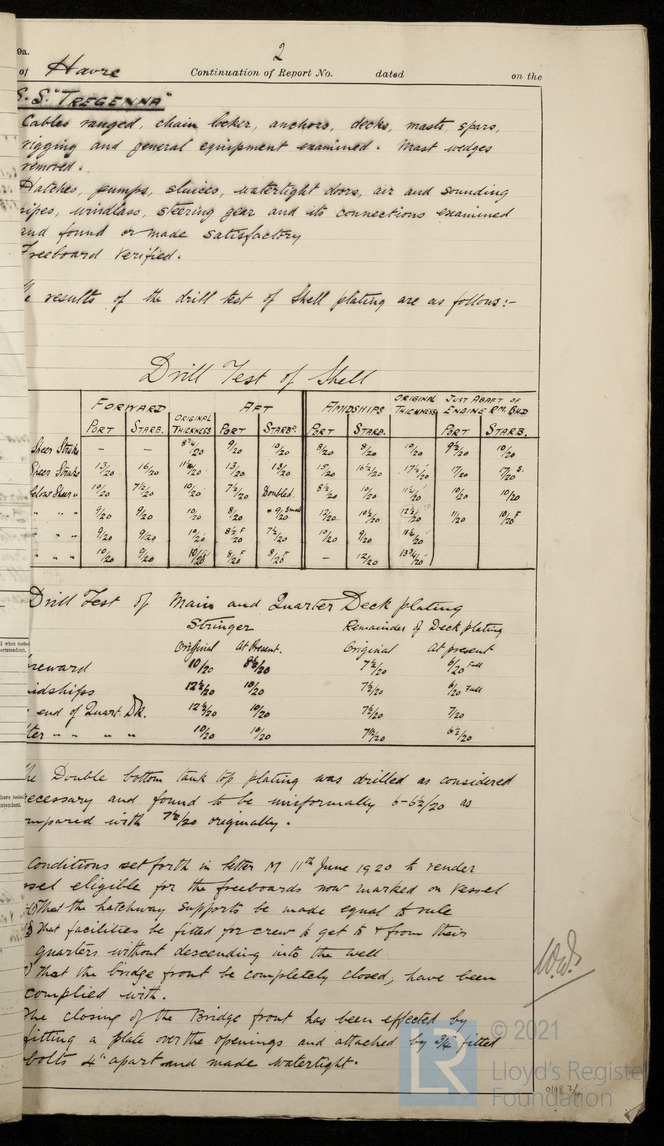 9a.
2
of Havre Continuation of Report No. dated on the
S.S. "TREGENNA"
Cables ranged, chain locker, anchors, decks, masts, spars,
rigging and general equipment examined. Mast wedges
removed.
Hatches, pumps, sluices, watertight doors, air and sounding
pipes, windlass, steering gear and its connections examined
and found or made satisfactory
Freeboard Verified.
The results of the drill test of Shell plating are as follows:-
Drill Test of Shell
FORWARD AFT AMIDSHIPS ORIGINAL THICKNESS JUST ABAFT OF ENGINE RM. BHD
PORT STARB. ORIGINAL THICKNESS PORT STARBD. PORT STARB. PORT STARB.
Sheer Strake - - 8 3/4/20 9/20 10/20 8/20 8/20 10/20 9 1/2/20 10/20
Sheer Strake 13/20 16/20 13/20 13/20 15/20 16 1/2/20 17/20 17/20
below Sheer " 10/20 7 1/2/20 10/20 7 1/2/20 Doubled. 8 1/2/20 10/20 10/20 10/20
" " " 9/20 9/20 10/20 8/20 " 9/20 Small 12/20 10 1/2/20 12 1/2/20 11/20 10/20 F
" " " 9/20 9/20 10/20 8 1/2/20 F 7 1/2/20 11/20 9/20
" " " 10/20 9/20 8/20 F 8/20 F - 12/20 13 3/4/20
Drill Test of Main and Quarter Deck plating
Stringer Remainder of Deck plating
Original At Present. Original At present
Foreward 10/20 8 1/2/20 7 1/2/20 6/20 Full
Amidships 12 1/2/20 10/20 7 1/2/20 6/20 Full
" end of Quart. Dk. 12 1/2/20 10/20 7 1/2/20 7/20
After " " " 10/20 10/20 7 1/2/20 6 1/2/20
The Double bottom tank top plating was drilled as considered
necessary and found to be uniformally 6-6 1/2/20 as
compared with 7 1/2/20 originally.
Conditions set forth in letter M 11th June 1920 to render
vessel eligible for the freeboards now marked on vessel
That the hatchway supports be made equal to rule
That facilities be fitted for crew to get to & from their
quarters without descending into the well
That the bridge front be completely closed, have been
complied with.
The closing of the Bridge front has been effected by
fitting a plate over the openings and attached by 3/4" fitted
bolts 4" apart and made watertight.
© 2021
LR
Lloyd's Register
Foundation